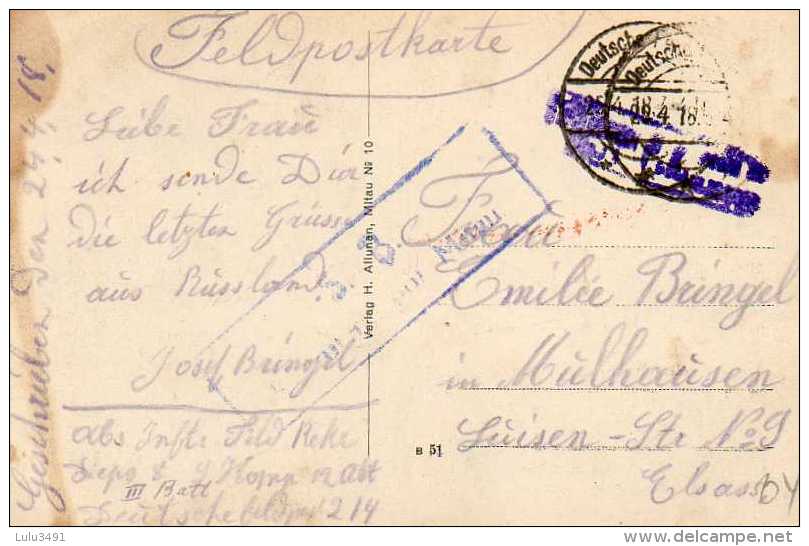 Feldpostkarte
Geschrieben den 24.4.18.
Liebe Frau
ich sende Dir
die letzten Grüsse
aus Russland
Josef Bringel
Abs Inftr Feld Rekr
Depo 8
III Batl
Deutsche Feldpost 214
Verlag H. Allunan, Mitau No 10
B 51
Deutsche
Deutsche
25.4.18
26.4.18
S. B.
Mitau
Frau
Emilie Bringel
in Mülhausen
Luisen-Str No 9
Elsass
Lulu3491
www.delcampe.net